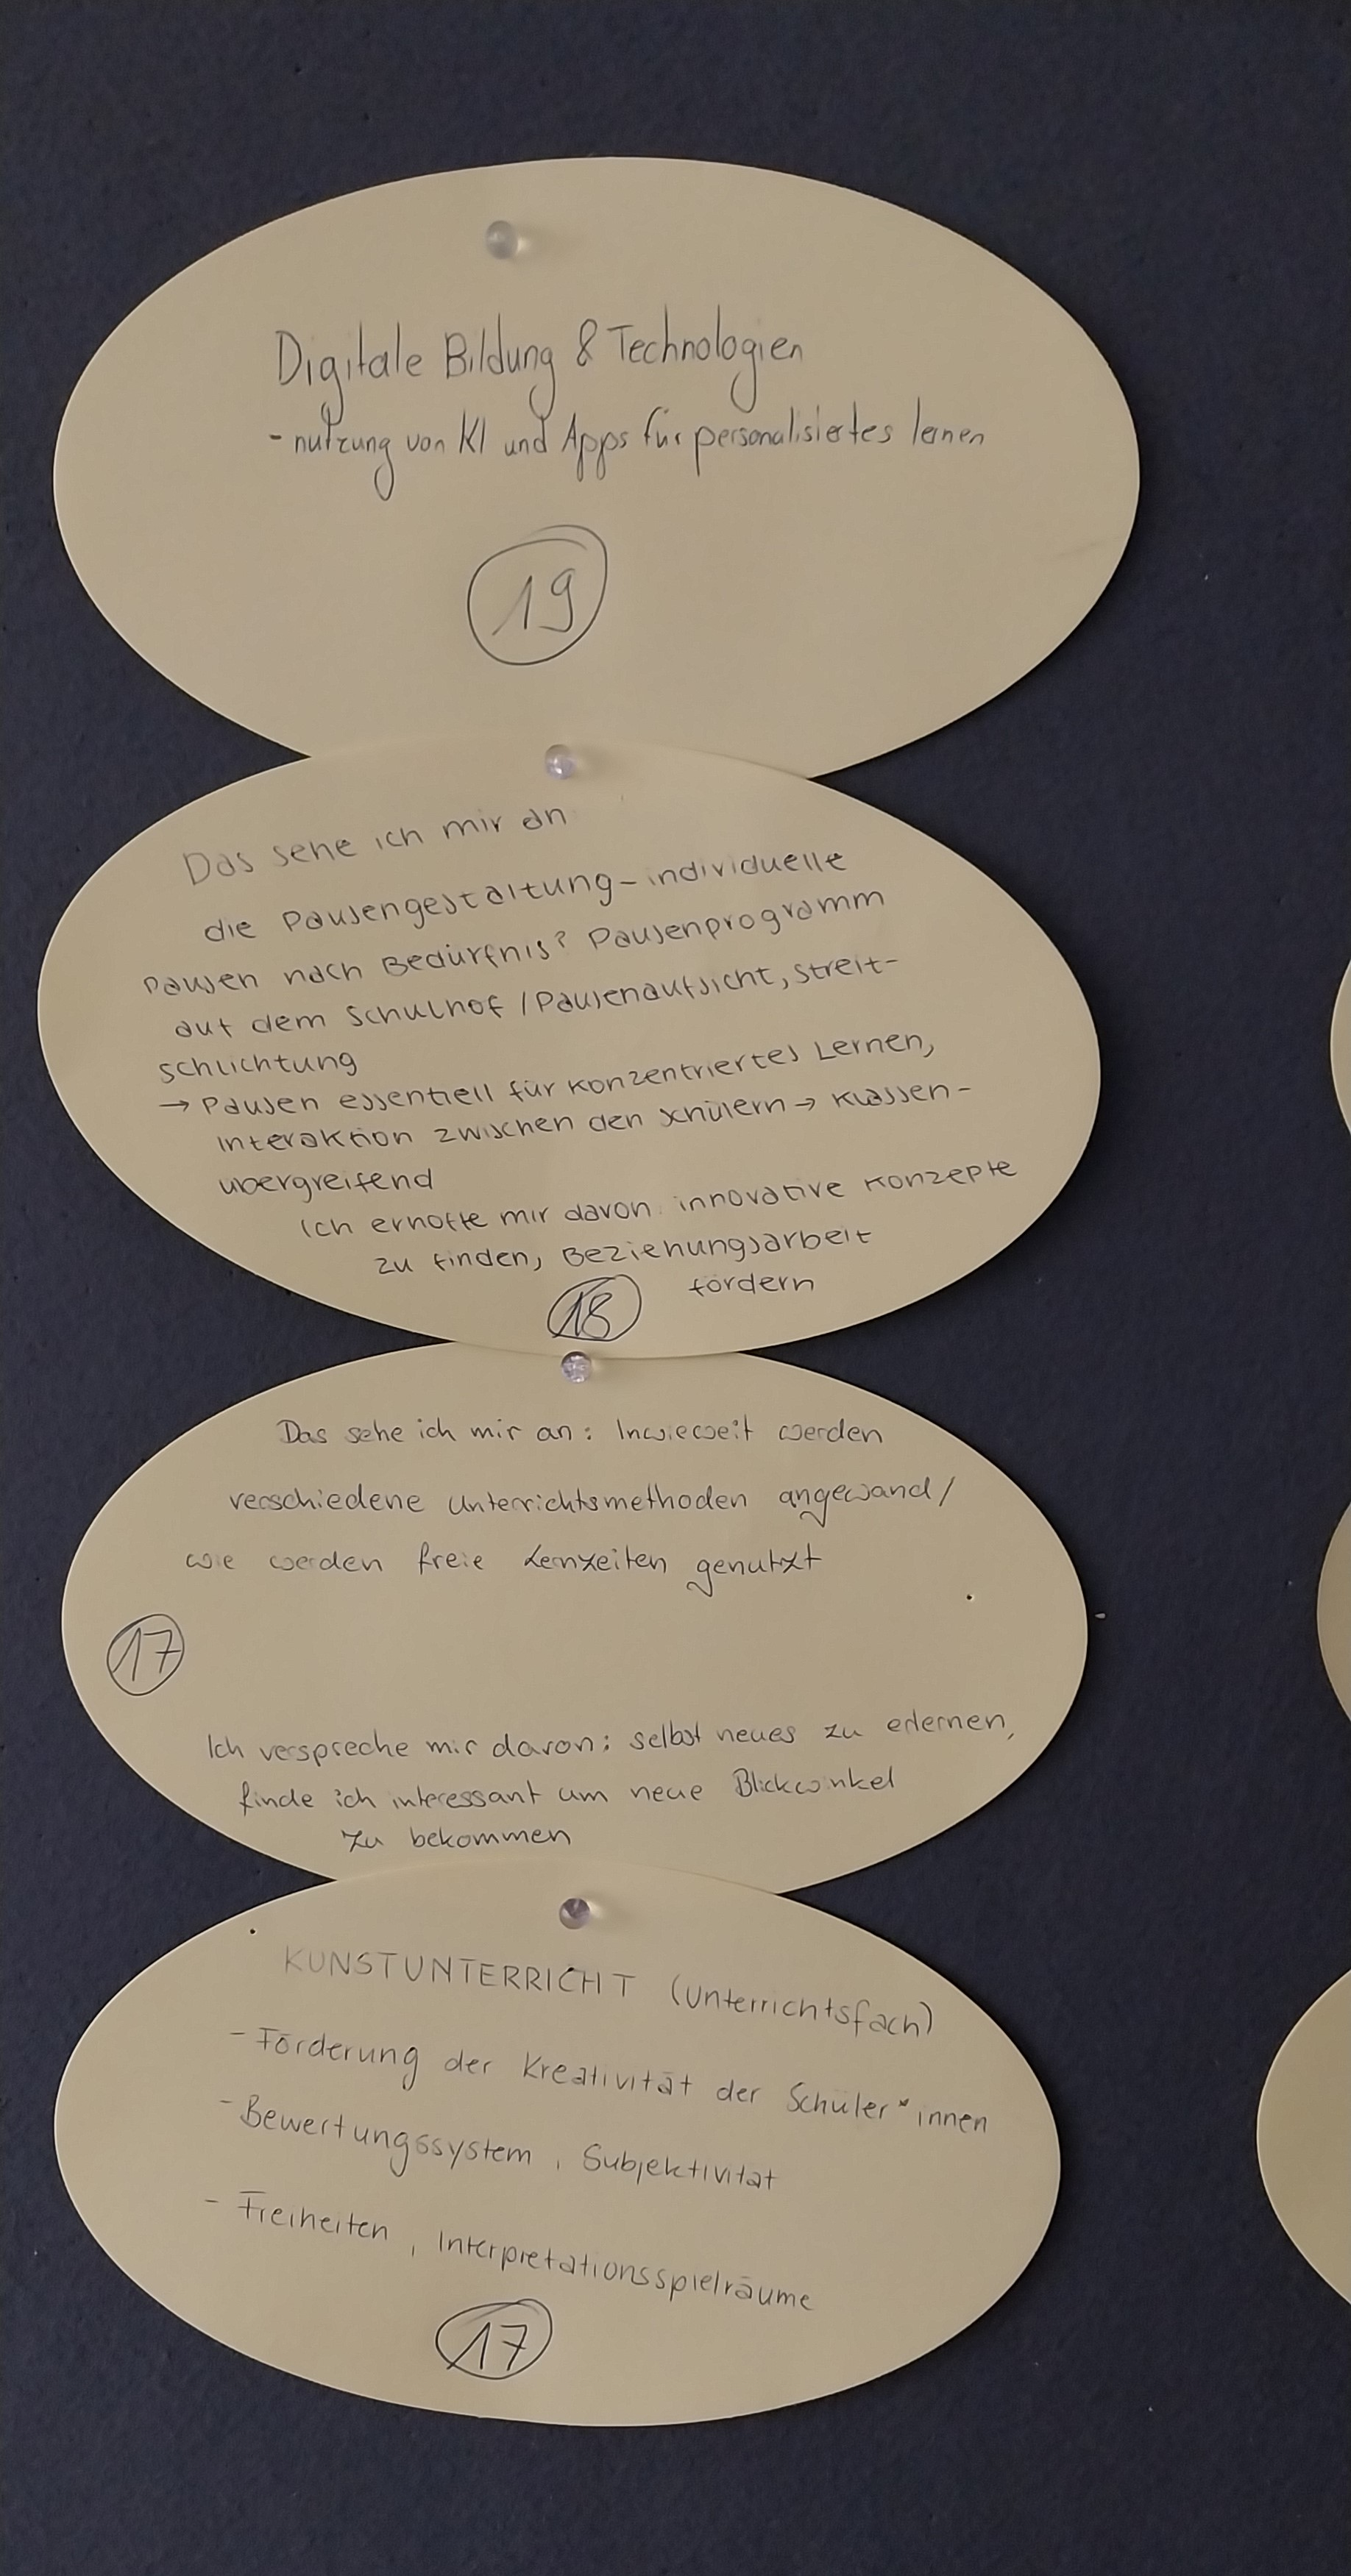 Digitale Bildung & Technologien
- nutzung von KI und Apps für personalisiertes lernen
19
Das sehe ich mir an
die Pausengestaltung - individuelle
Pausen nach Bedürfnis? Pausenprogramm
auf dem Schulhof / Pausenaufsicht, Streit-
schlichtung
→ Pausen essentiell für konzentriertes Lernen,
Interaktion zwischen den Schülern → Klassen-
übergreifend
Ich erhoffe mir davon innovative Konzepte
zu finden, Beziehungsarbeit
fördern
18
Das sehe ich mir an: Inwieweit werden
verschiedene Unterrichtsmethoden angewand/
wie werden freie Lernzeiten genutzt
17
Ich verspreche mir davon: selbst neues zu erlernen,
finde ich interessant um neue Blickwinkel
zu bekommen
KUNSTUNTERRICHT (Unterrichtsfach)
- Förderung der Kreativität der Schüler*innen
- Bewertungssystem, Subjektivität
- Freiheiten, Interpretationsspielräume
17